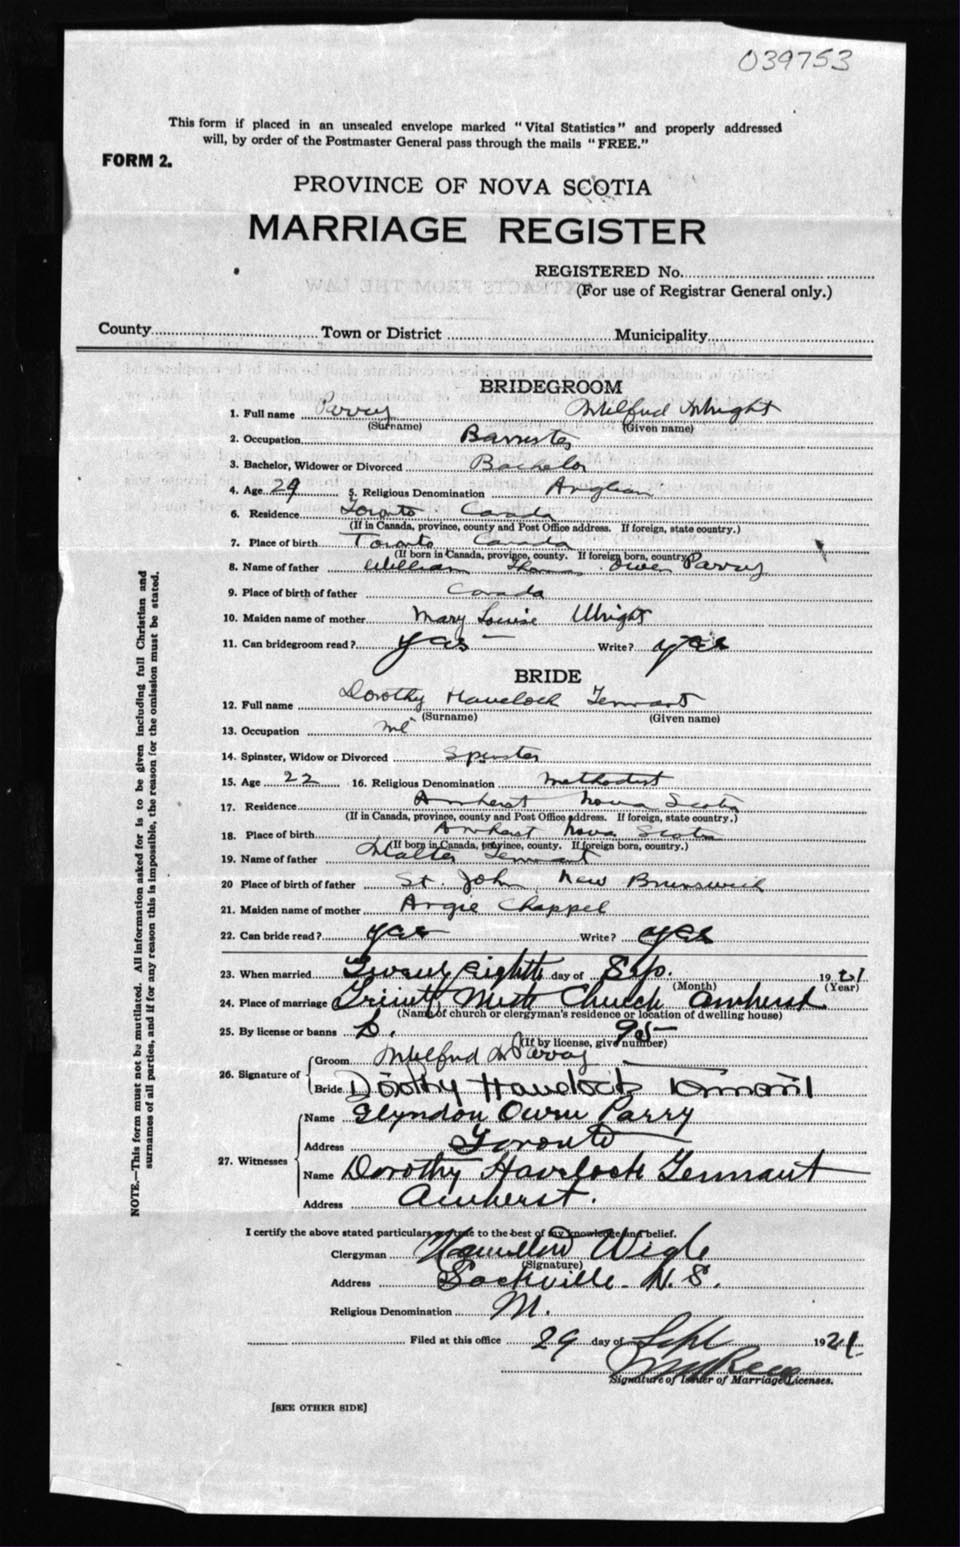 039753
This form if placed in an unsealed envelope marked "Vital Statistics" and properly addressed
will, by order of the Postmaster General pass through the mails "FREE."
FORM 2.
PROVINCE OF NOVA SCOTIA
MARRIAGE REGISTER
REGISTERED No.
(For use of Registrar General only.)
County Town or District Municipality
BRIDEGROOM
1. Full name Parry Milford Wright
(Surname) (Given name)
2. Occupation Barrister
3. Bachelor, Widower or Divorced Bachelor
4. Age 29 5. Religious Denomination Anglican
6. Residence Toronto Canada
(If in Canada, province, county and Post Office address. If foreign, state country.)
7. Place of birth Toronto Canada
(If born in Canada, province, county. If foreign born, country)
8. Name of father William Thomas Owen Parry
9. Place of birth of father Canada
10. Maiden name of mother Mary Louise Wright
11. Can bridegroom read? yes Write? yes
BRIDE
12. Full name Dorothy Havelock Tennant
(Surname) (Given name)
13. Occupation
14. Spinster, Widow or Divorced Spinster
15. Age 22 16. Religious Denomination Methodist
17. Residence Amherst Nova Scotia
(If in Canada, province, county and Post Office address. If foreign, state country.)
18. Place of birth Amherst Nova Scotia
(If born in Canada, province, county. If foreign born, country.)
19. Name of father Walter Tennant
20 Place of birth of father St. John New Brunswick
21. Maiden name of mother Angie Chappel
22. Can bride read? yes Write? yes
23. When married Twenty eighth day of Sep. 1921
(Month) (Year)
24. Place of marriage Trinity Meth Church Amherst
(Name of church or clergyman's residence or location of dwelling house)
25. By license or banns L. 95
(If by license, give number)
26. Signature of Groom Milford W Parry
Bride Dorothy Havelock Tennant
27. Witnesses Name Glyndon Owen Parry
Address Toronto
Name Dorothy Havelock Tennant
Address Amherst.
I certify the above stated particulars are true to the best of my knowledge and belief.
Clergyman Hamilton Wigle
(Signature)
Address Sackville N.S.
Religious Denomination M.
Filed at this office 29 day of Sept 1921.
Signature of Issuer of Marriage Licenses.
[SEE OTHER SIDE]
NOTE.—This form must not be mutilated. All information asked for is to be given including full Christian and
surnames of all parties, and if for any reason this is impossible, the reason for the omission must be stated.